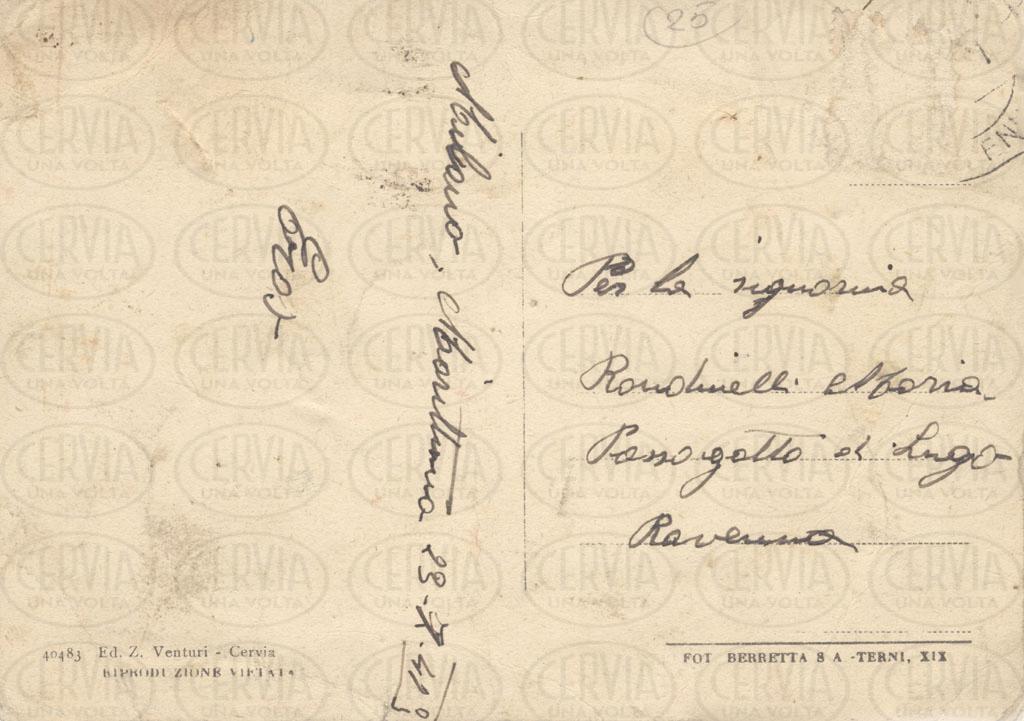 25
Milano, Marittima 23-7-41°
Eros
Per la signorina
Rondinelli Maria
Passogatto di Lugo
Ravenna
40483 Ed. Z. Venturi - Cervia
RIPRODUZIONE VIETATA
FOT BERRETTA S A - TERNI, XIX
CERVIA
UNA VOLTA